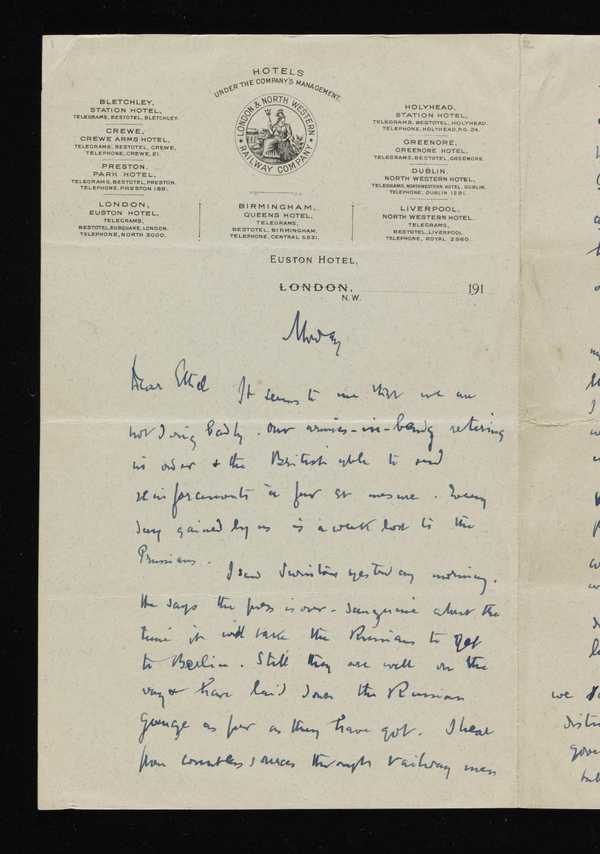 HOTELS
UNDER THE COMPANY'S MANAGEMENT.
LONDON & NORTH WESTERN RAILWAY COMPANY
BLETCHLEY,
STATION HOTEL,
TELEGRAMS, BESTOTEL, BLETCHLEY.
CREWE,
CREWE ARMS HOTEL,
TELEGRAMS, BESTOTEL, CREWE,
TELEPHONE, CREWE, 21.
PRESTON.
PARK HOTEL,
TELEGRAMS, BESTOTEL, PRESTON.
TELEPHONE, PRESTON 188.
LONDON,
EUSTON HOTEL,
TELEGRAMS,
BESTOTEL, EUSQUARE, LONDON.
TELEPHONE, NORTH 3000.
BIRMINGHAM,
QUEENS HOTEL,
TELEGRAMS,
BESTOTEL, BIRMINGHAM.
TELEPHONE, CENTRAL 5831.
HOLYHEAD,
STATION HOTEL,
TELEGRAMS, BESTOTEL, HOLYHEAD.
TELEPHONE, HOLYHEAD, NO. 24.
GREENORE,
GREENORE HOTEL,
TELEGRAMS, BESTOTEL, GREENORE.
DUBLIN.
NORTH WESTERN HOTEL,
TELEGRAMS, NORTHWESTERN HOTEL, DUBLIN.
TELEPHONE, DUBLIN 1291.
LIVERPOOL,
NORTH WESTERN HOTEL.
TELEGRAMS,
BESTOTEL, LIVERPOOL.
TELEPHONE, ROYAL 2960.
EUSTON HOTEL,
LONDON, 191
N.W.
Monday
Dear Ethel It seems to me that we are
not doing badly. Our armies in being retiring
in order & the British able to send
reinforcements in for measure. Every
day gained by us is a week lost to the
Prussians.
I saw yesterday morning.
He says the press is over-sanguine about the
time it will take the Russians to get
to Berlin. Still they are well on the
way & have laid down the Russian
gauge as far as they have got. I hear
from countless sources through railway men
we
distri
gove